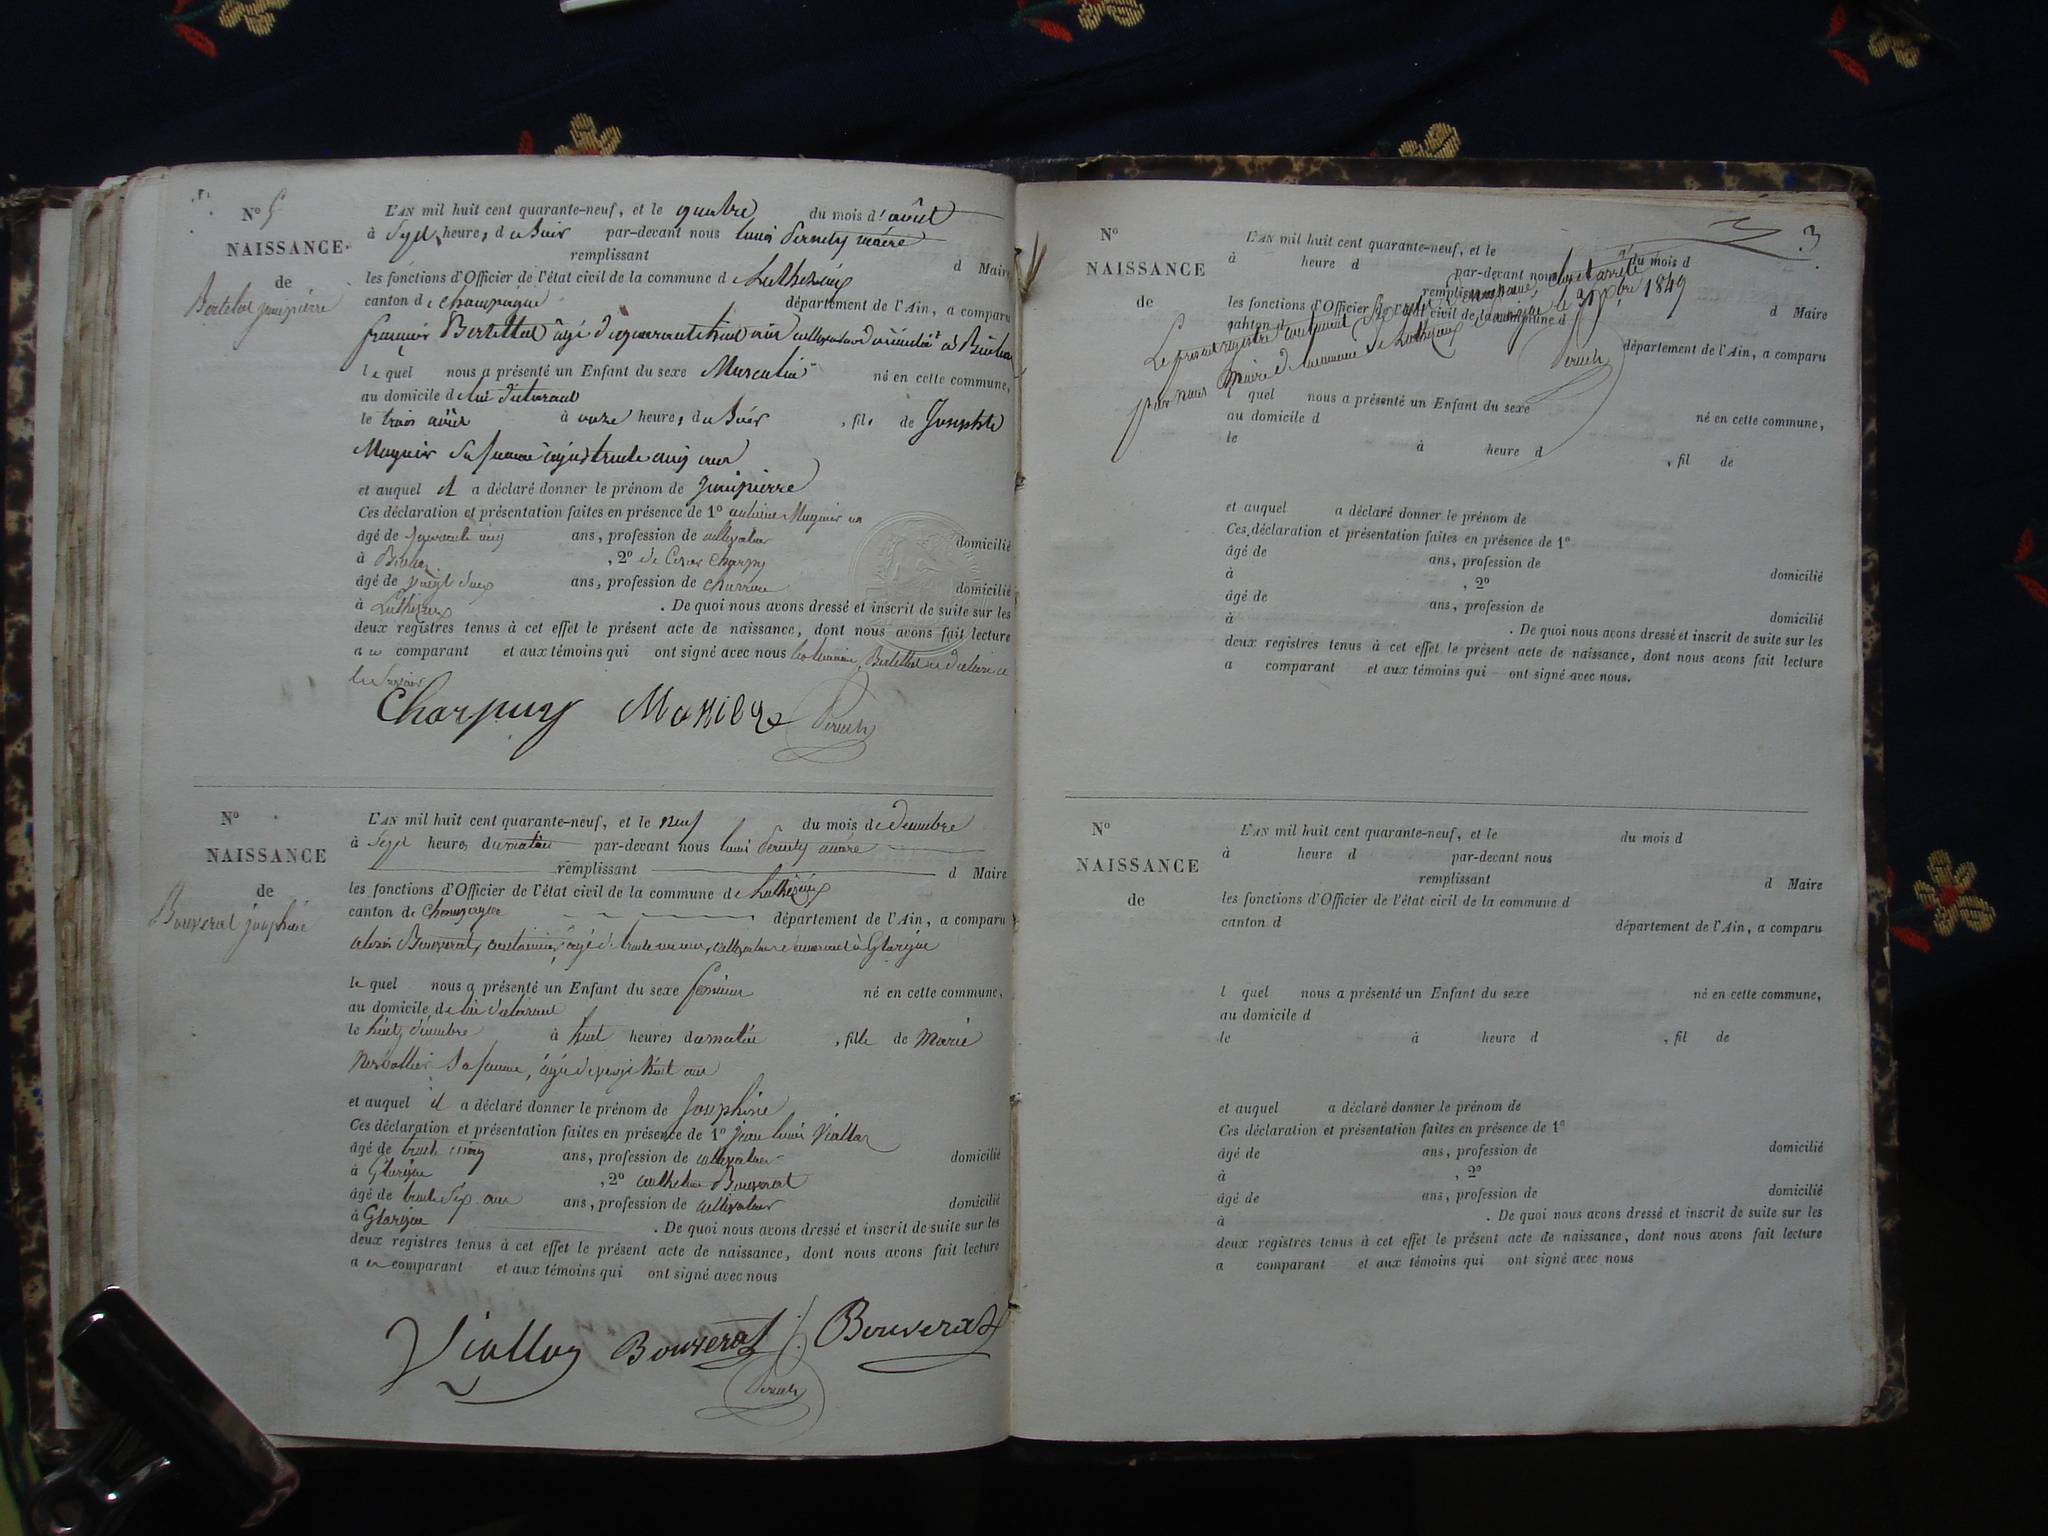 N° 5
NAISSANCE
de
Bertelat jeanpierre
L'AN mil huit cent quarante-neuf, et le quatre du mois d'août
à sept heures du soir par-devant nous maire
remplissant d Maire
les fonctions d'Officier de l'état civil de la commune d
canton de champagne département de l'Ain, a comparu
Bertellat âgé de quarante huit ans cultivateur
lequel nous a présenté un Enfant du sexe Masculin né en cette commune,
au domicile de lui déclarant
le trois août à onze heures du soir, fils de Josephte
Mugnier sa femme âgée trente cinq ans
et auquel il a déclaré donner le prénom de Jeanpierre
Ces déclaration et présentation faites en présence de 1° antoine Mugnier
âgé de cinq ans, profession de cultivateur domicilié
à , 2° de Cesar Charpuy
âgé de vingt deux ans, profession de charron domicilié
à . De quoi nous avons dressé et inscrit de suite sur les
deux registres tenus à cet effet le présent acte de naissance, dont nous avons fait lecture
a comparant et aux témoins qui ont signé avec nous
Charpuy
N°
NAISSANCE
de
Bouverat joséphine
L'AN mil huit cent quarante-neuf, et le neuf du mois de décembre
à sept heures du matin par-devant nous maire
remplissant d Maire
les fonctions d'Officier de l'état civil de la commune de
canton de Champagne département de l'Ain, a comparu
Bouverat, âgé de trente ans, cultivateur demeurant à
lequel nous a présenté un Enfant du sexe féminin né en cette commune,
au domicile de lui déclarant
le huit décembre à huit heures du matin, fille de Marie
sa femme, âgée de vingt huit ans
et auquel il a déclaré donner le prénom de Joséphine
Ces déclaration et présentation faites en présence de 1° jean louis Viallon
âgé de trente cinq ans, profession de cultivateur domicilié
à , 2° anthelme Bouverat
âgé de trente six ans ans, profession de cultivateur domicilié
à . De quoi nous avons dressé et inscrit de suite sur les
deux registres tenus à cet effet le présent acte de naissance, dont nous avons fait lecture
a comparant et aux témoins qui ont signé avec nous
Viallon Bouverat Bouverat
3
N°
NAISSANCE
de
L'AN mil huit cent quarante-neuf, et le du mois d
à heure d par-devant nous
remplissant
les fonctions d'Officier de l'état civil de la commune d d Maire
canton d département de l'Ain, a comparu
Le présent registre clos et arrêté
par nous Maire de la commune de le 31 1849
l quel nous a présenté un Enfant du sexe
au domicile d né en cette commune,
le à heure d , fil de
et auquel a déclaré donner le prénom de
Ces déclaration et présentation faites en présence de 1°
âgé de ans, profession de
à , 2° domicilié
âgé de ans, profession de
à domicilié
. De quoi nous avons dressé et inscrit de suite sur les
deux registres tenus à cet effet le présent acte de naissance, dont nous avons fait lecture
a comparant et aux témoins qui ont signé avec nous.
N°
NAISSANCE
de
L'AN mil huit cent quarante-neuf, et le du mois d
à heure d par-devant nous
remplissant d Maire
les fonctions d'Officier de l'état civil de la commune d
canton d département de l'Ain, a comparu
l quel nous a présenté un Enfant du sexe né en cette commune,
au domicile d
le à heure d , fil de
et auquel a déclaré donner le prénom de
Ces déclaration et présentation faites en présence de 1°
âgé de ans, profession de domicilié
à , 2°
âgé de ans, profession de domicilié
à . De quoi nous avons dressé et inscrit de suite sur les
deux registres tenus à cet effet le présent acte de naissance, dont nous avons fait lecture
a comparant et aux témoins qui ont signé avec nous